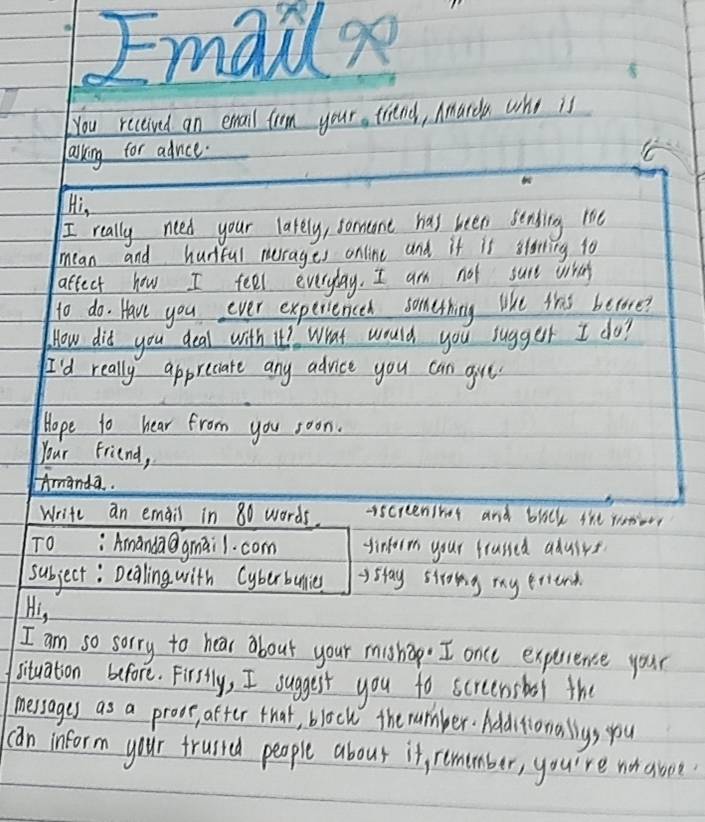 Email
You received an email from your friend, Amanda who is
asking for advice.
Hi,
I really need your lately, someone has been sending me
mean and hurtful messages online and it is starting to
affect how I feel everyday. I am not sure what
to do. Have you ever experienced something like this before?
How did you deal with it? What would you suggest I do?
I'd really appreciate any advice you can give.
Hope to hear from you soon.
Your Friend,
Amanda.
Write an email in 80 words. →screenshot and block the number
TO : Amanda@gmail.com →inform your trusted adults.
subject: Dealing with Cyberbullies →stay strong my friend
Hi,
I am so sorry to hear about your mishap. I once experience your
situation before. Firstly, I suggest you to screenshot the
messages as a proof, after that, block the number. Additionally, you
can inform your trusted people about it, remember, you're not alone.